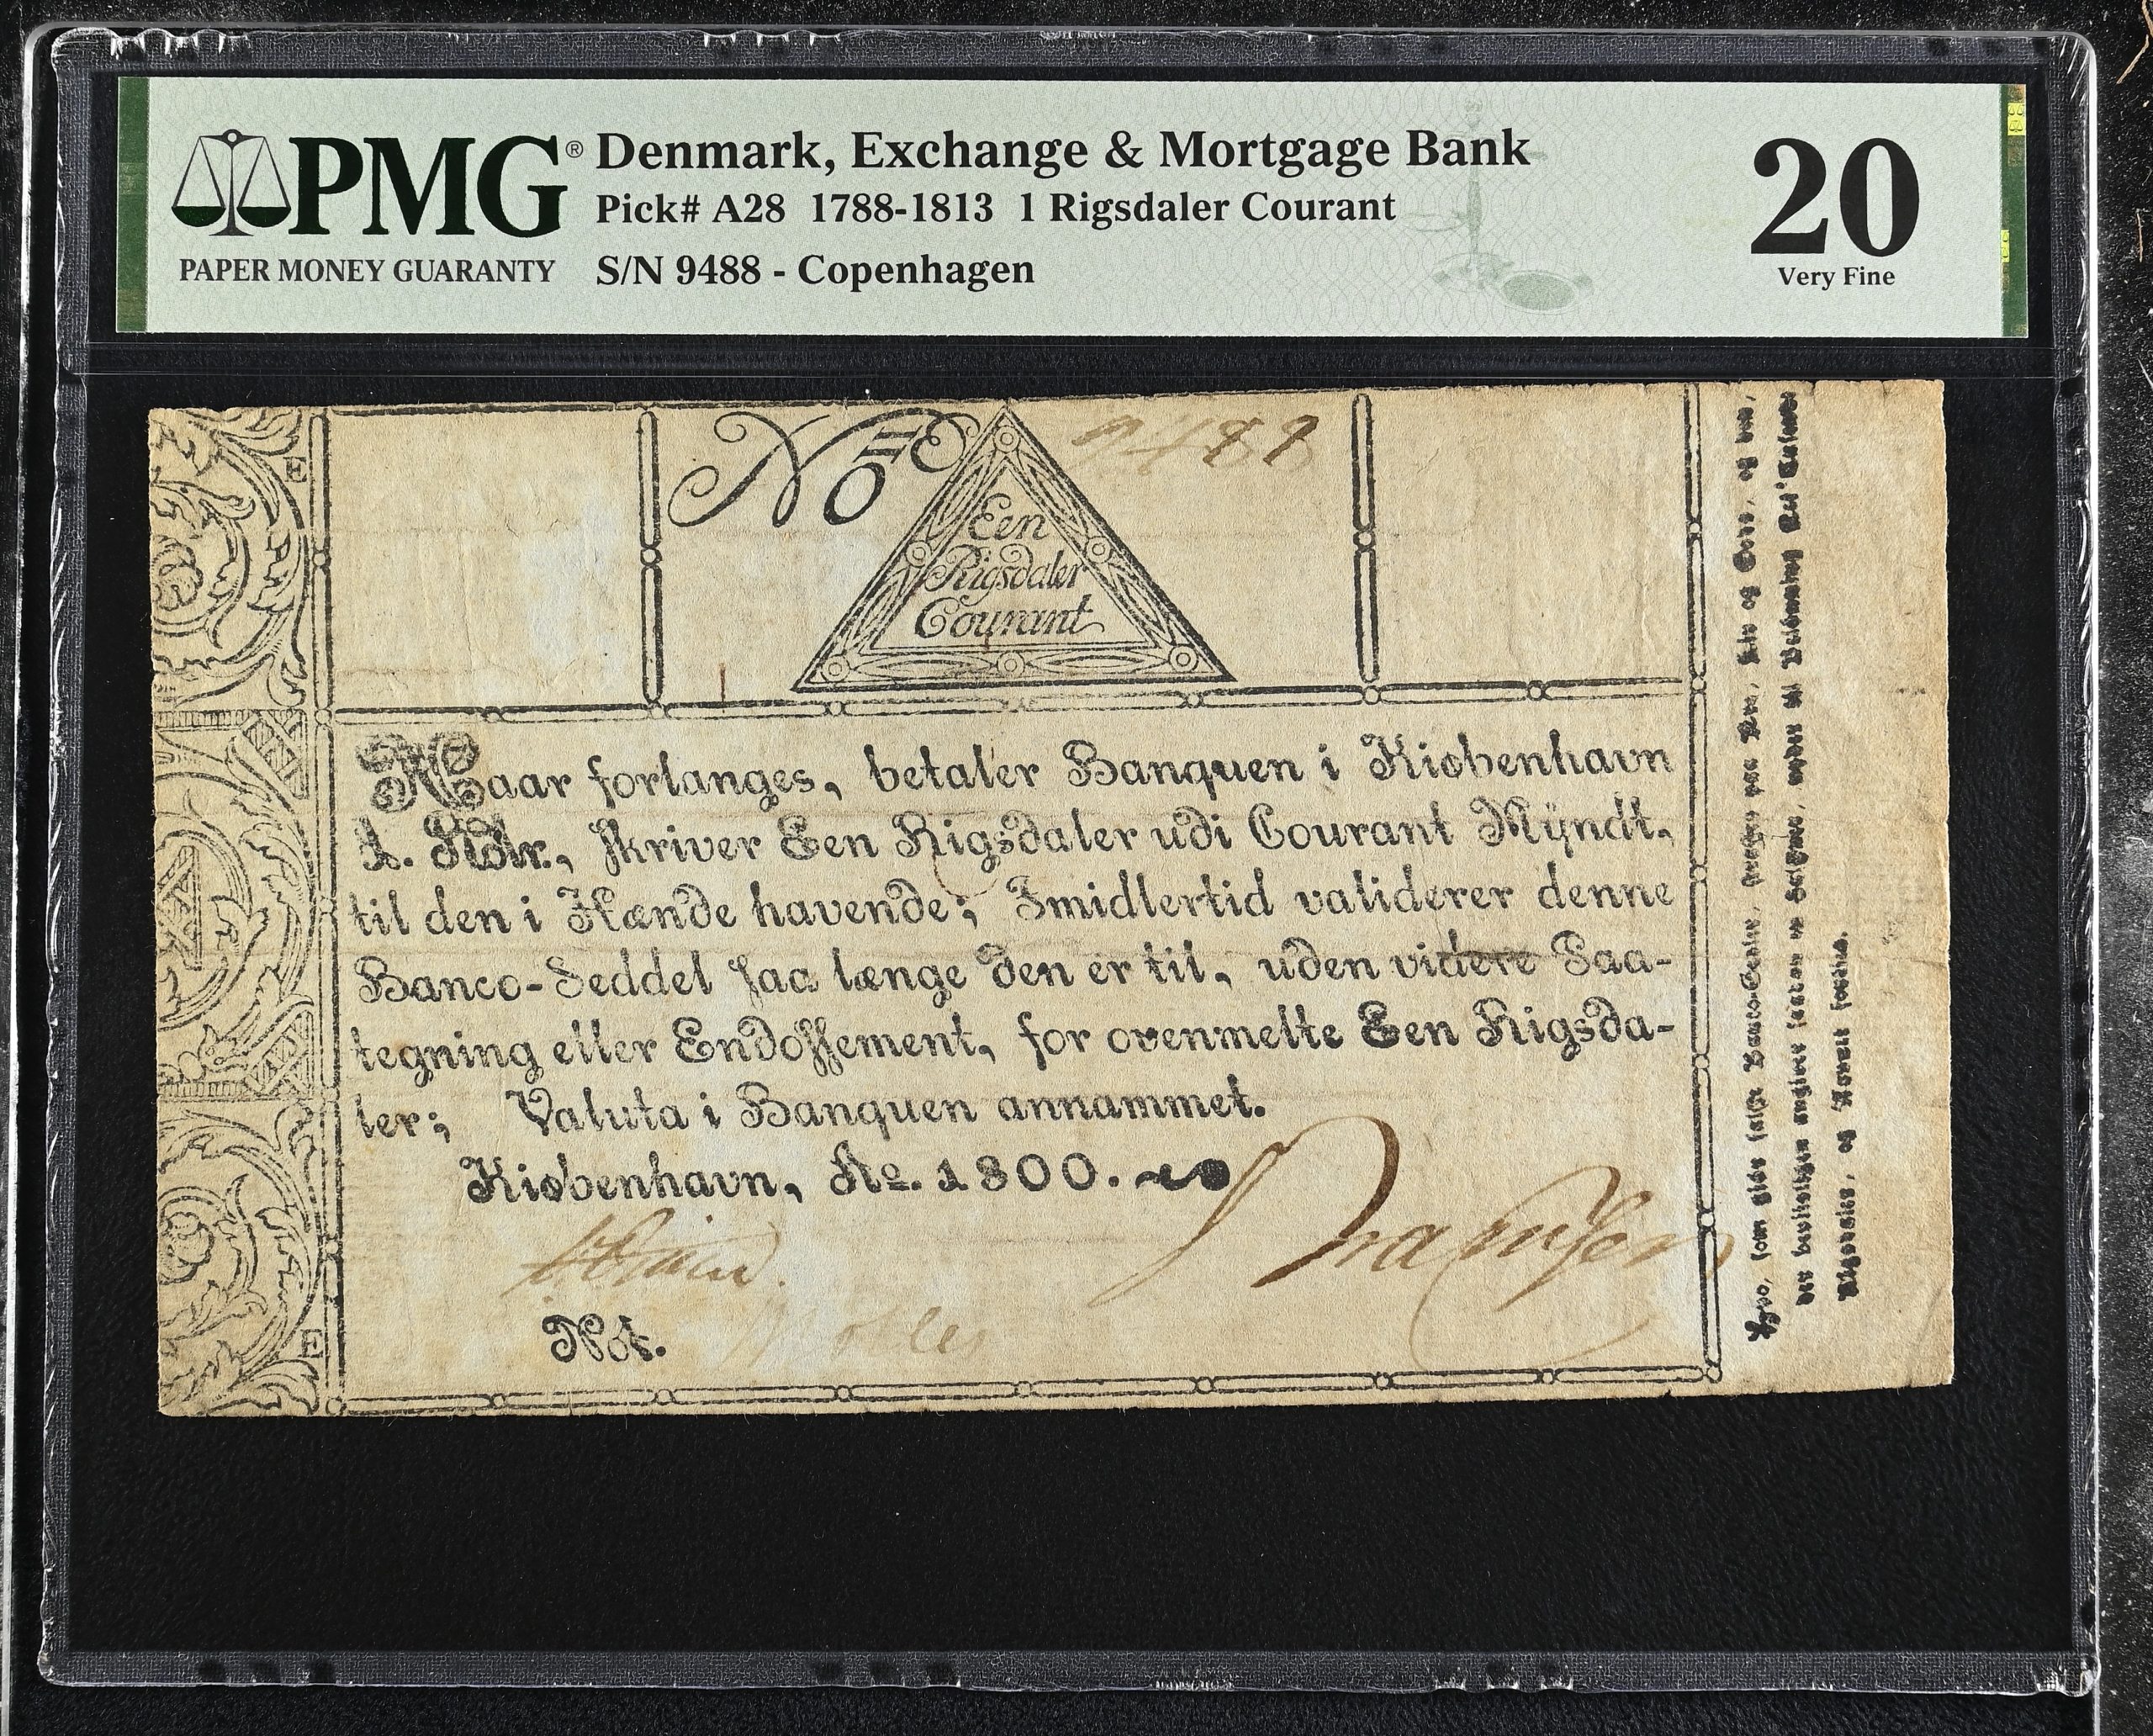 PMG®
PAPER MONEY GUARANTY
Denmark, Exchange & Mortgage Bank
Pick# A28 1788-1813 1 Rigsdaler Courant
S/N 9488 - Copenhagen
20
Very Fine
E
No 9488
Een
Rigsdaler
Courant
Naar forlanges, betaler Banquen i Kiøbenhavn
1. Rdlr., skriver Een Rigsdaler udi Courant Mÿndt,
til den i Hænde havende; Imidlertid validerer denne
Banco-Seddel saa længe den er til, uden videre Paa-
tegning eller Endossement, for ovenmelte Een Rigsda-
ler; Valuta i Banquen annammet.
Kiøbenhavn, Ao. 1800.
Not.
E
Hvo, som giør falske Banco-Sedler, straffes paa Ære, Liv og Gods, og den,
der beviisligen angiver saadan en Selskue, nyder til Belønning Rd. Courant
Rigsdaler, og Navnet forties.